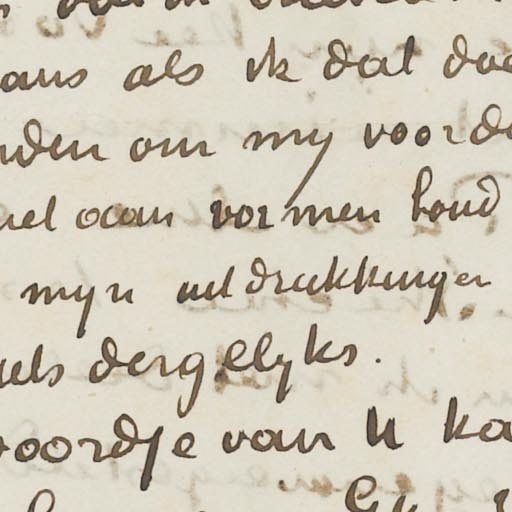 aus als ik dat doe
nden om my voorde
niet aan vormen houd
myn uitdrukkingen
iets dergelyks.
woordje van U ka